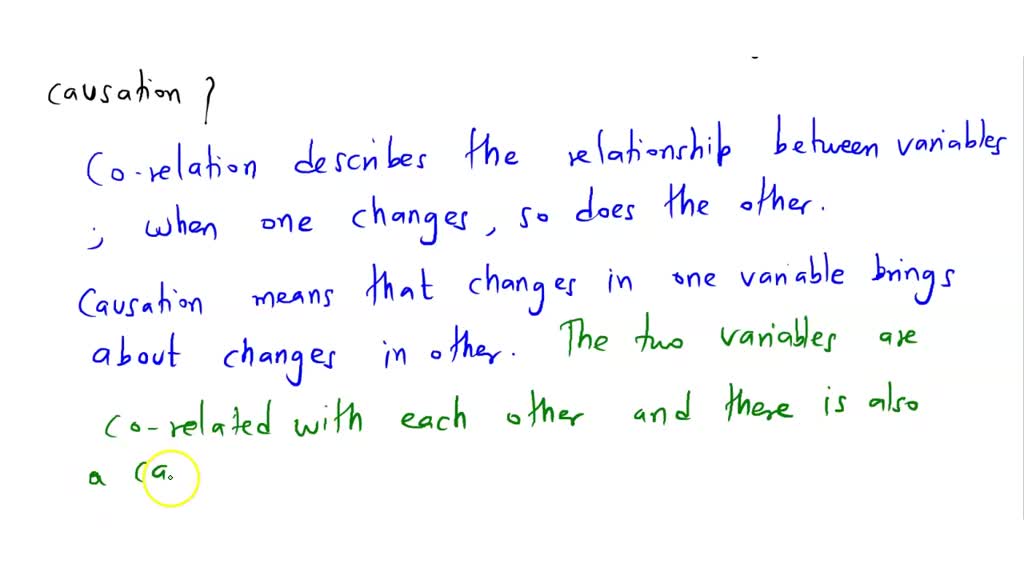 causation ?
Co-relation describes the relationship between variables
; when one changes, so does the other.
Causation means that changes in one variable brings
about changes in other. The two variables are
co-related with each other and there is also
a ca